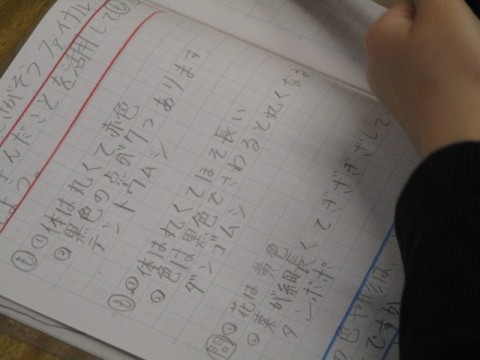 がそう ファイナル
んだことを活用して
よう。
問①体は丸くて赤色
②黒色の点が7つあります
テントウムシ
問①体は丸くてほそ長い
②色は黒色でさわると丸くなる。
ダンゴムシ
問①花は黄色
②葉が細長くてぎざぎざして
タンポポ
色や形は、
ですか